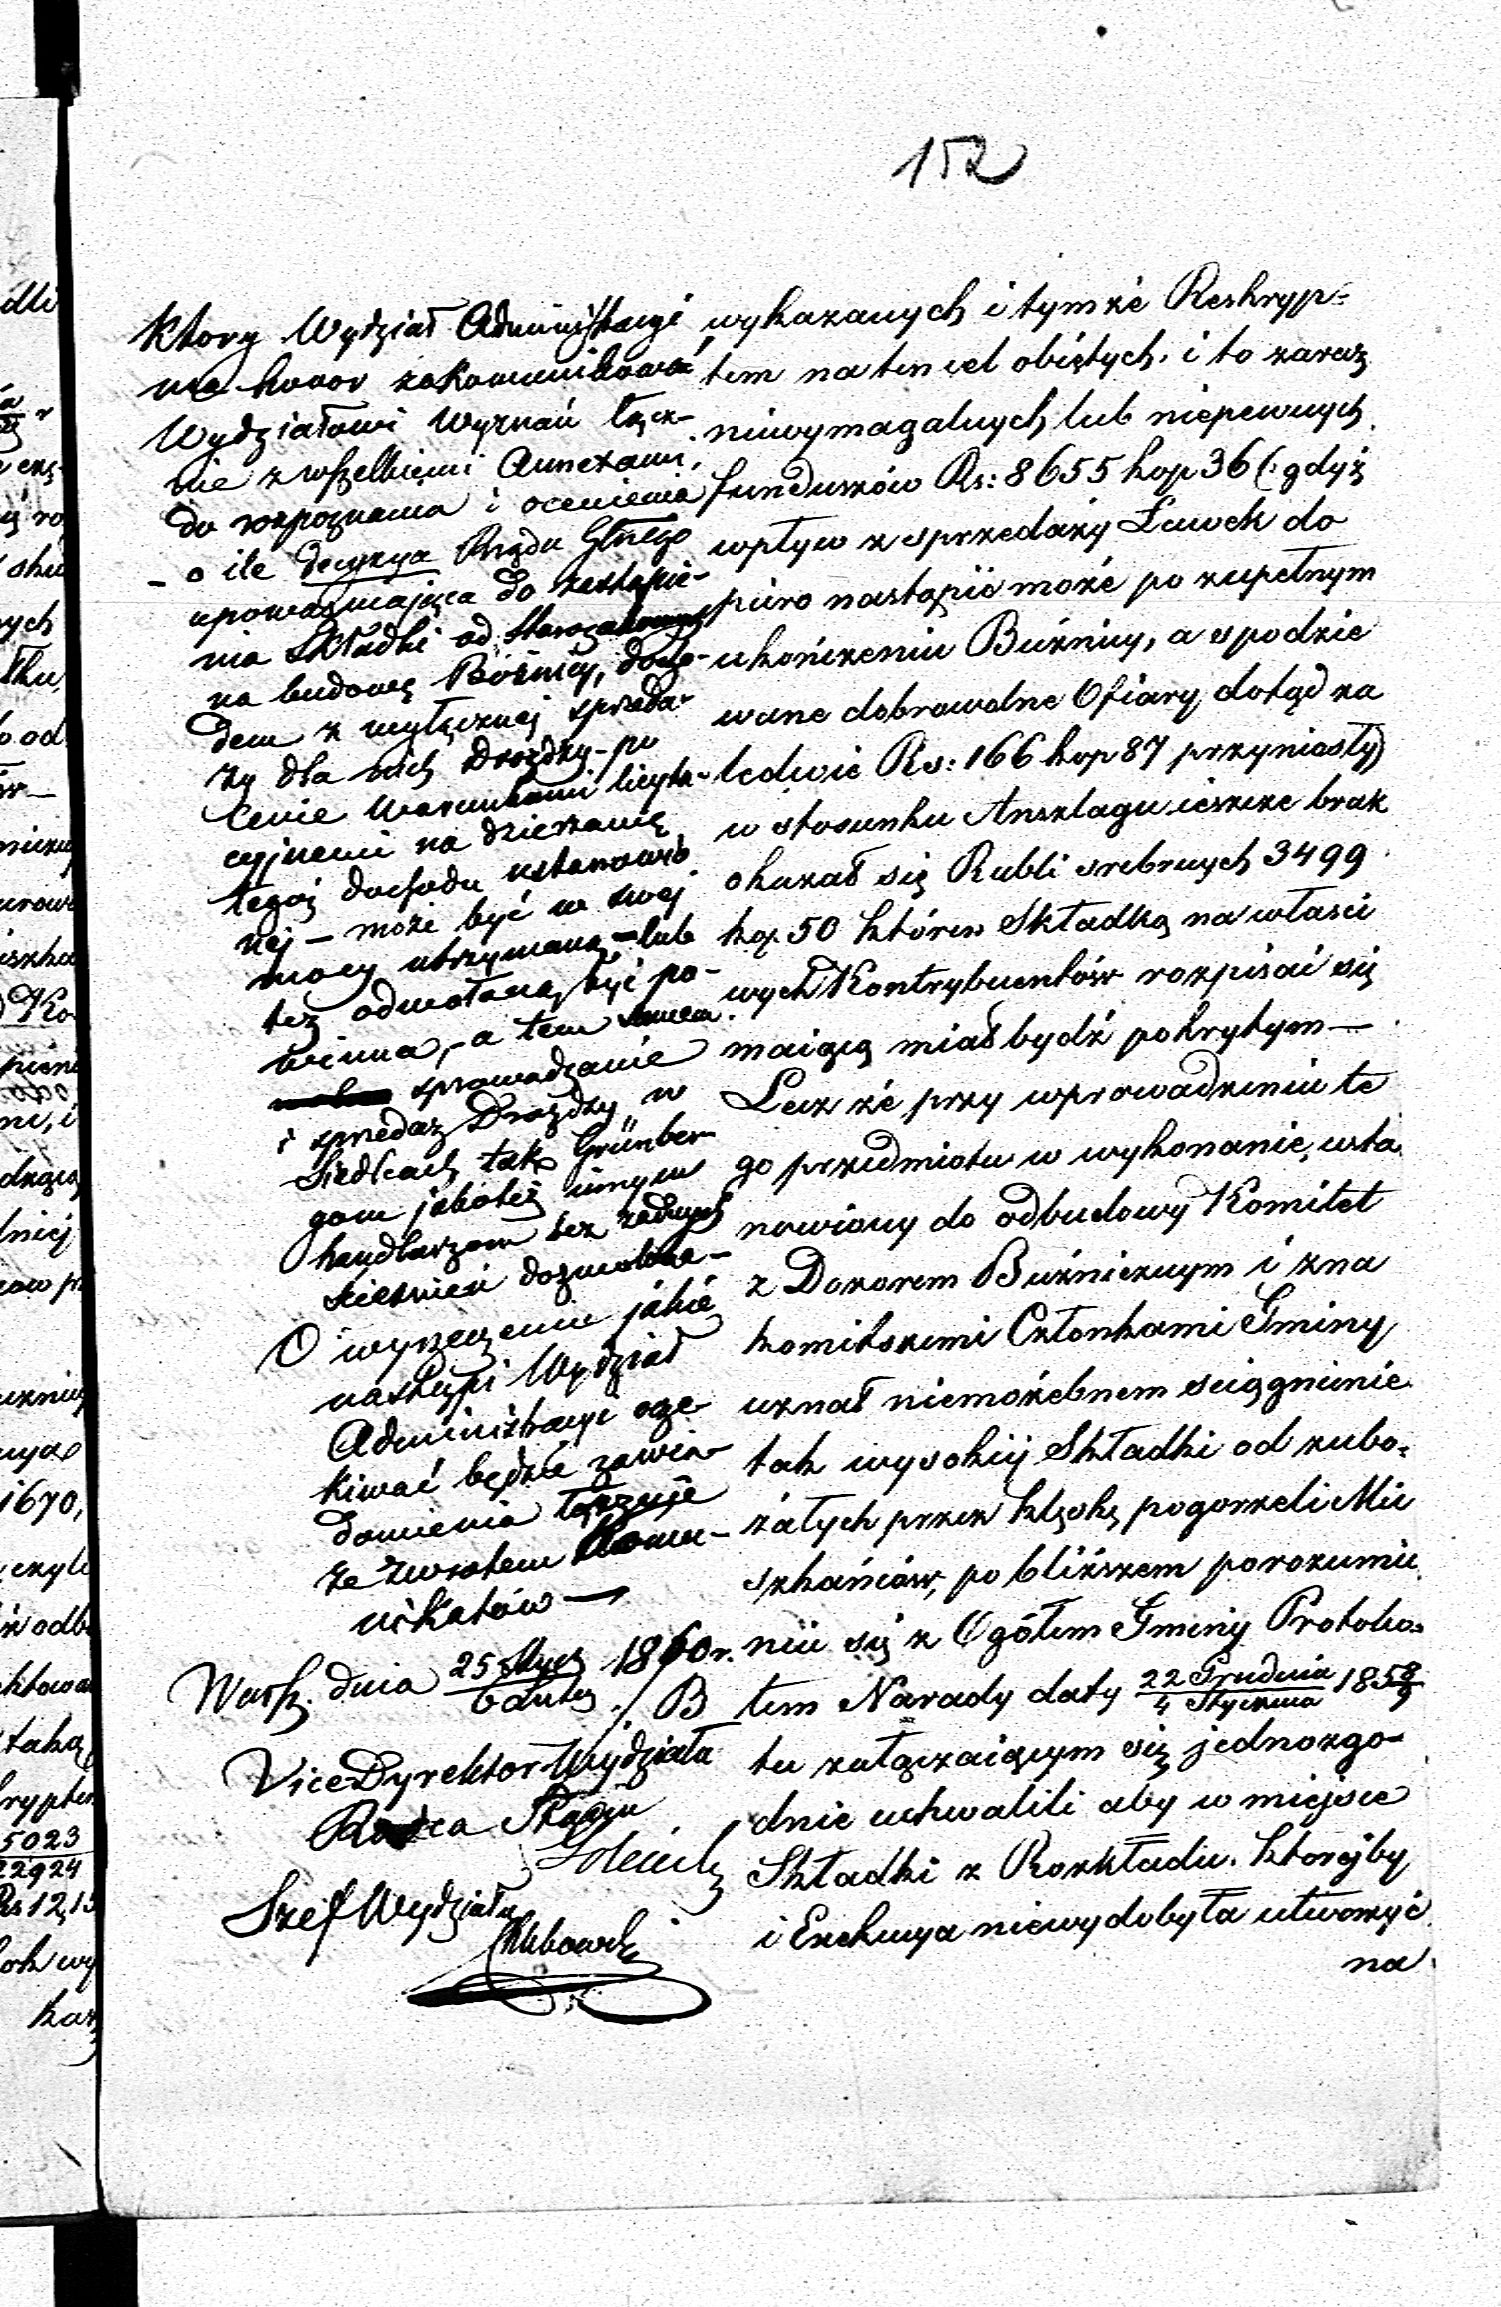 152
który Wydział Administracyi
ma honor zakomunikować
Wydziałowi Wyznań łącz-
nie z wszelkiemi Annexami,
do rozpoznania i ocenienia
- o ile decyzya Rządu Głnego
upoważniająca do zastąpie-
nia Składki od Starozakonnych
na budowę Bóżnicy, docho-
dem z wyłącznej sprzeda-
ży dla nich Drożdży - po
cenie warunkami licyta-
cyjnemi na dzierżawę
tegoż dochodu ustanowio
nej - może być w swej
mocy utrzymaną - lub
też odwołaną być po-
winna, - a tem samem
sprowadzanie
i sprzedaż Drożdży w
Siedlcach tak Grünber
gom jakoteż innym
handlarzom bez żadnych
ścieśnień dozwolone -
O wyrzeczeniu jakie
nastąpi Wydział
Administracyi ocze
kiwać będzie zawia-
domienia łącznie
ze zwrotem Komu-
nikatów —
Warsz. dnia 25 Stycz / 6 Lutego 1860 r.
Vice Dyrektor Wydziału
Radca Stanu
Szef Wydziału
wykazanych i tymże Reskryp=
tem na ten cel obiętych, i to zaraz
niewymagalnych lub niepewnych
funduszów Rs: 8655 kop 36 (: gdyż
wpływ z sprzedaży Ławek do
piero nastąpić może po zupełnym
ukończeniu Buźnicy, a spodzie
wane dobrowolne Ofiary dotąd za
ledwie Rs: 166 kop 87 przyniosły)
w stosunku Anszlagu ieszcze brak
okazał się Rubli srebrnych 3499
kop. 50 któren Składką na właści
wych Kontrybuentów rozpisać się
maiącą miał bydź pokrytym —
Lecz że przy wprowadzeniu te
go przedmiotu w wykonanie, usta
nowiony do odbudowy Komitet
z Dozorem Buźnicznym i zna
komitszemi Członkami Gminy
uznał niemożebnem sciągnienie
tak wysokiej Składki od zubo=
żałych przez klęskę pogorzeli Mie
szkańców, po bliższem porozumie
niu się z Ogółem Gminy Protoko=
łem Narady daty 22 Grudnia / 4 Stycznia 1858/9
tu załączaiącym się jednozgo=
dnie uchwalili aby w miejsce
Składki z Rozkładu, którejby
i Exekucya niewydobyła utworzyć
na